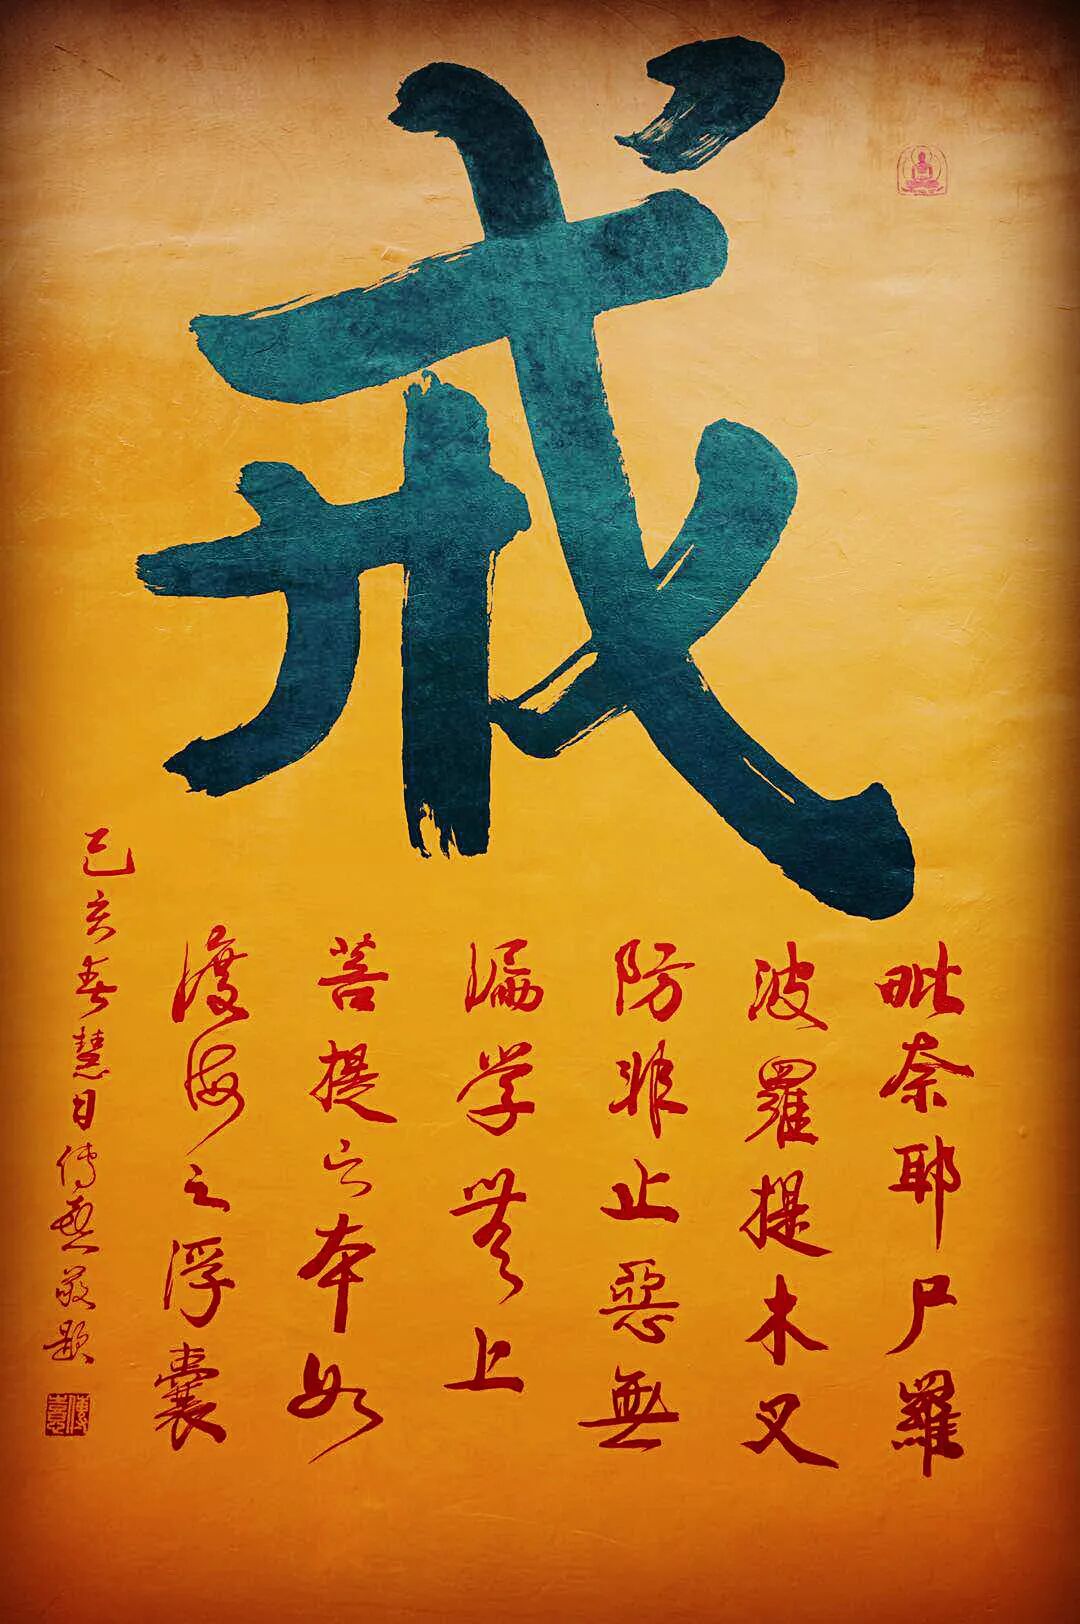 戒
毗奈耶尸羅
波羅提木叉
防非止惡無
漏学無上
菩提之本如
渡海之浮囊
己亥春慧日傳敬題